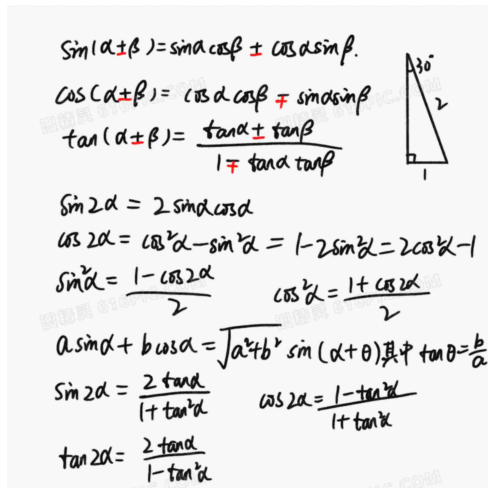 sin(α±β)=sinαcosβ ± cosαsinβ.
cos(α±β)= cosαcosβ ∓ sinαsinβ
tan(α±β)= (tanα ± tanβ)/(1 ∓ tanα tanβ)
30°
2
1
sin2α = 2sinαcosα
cos2α = cos²α-sin²α = 1-2sin²α=2cos²α-1
sin²α= (1-cos2α)/2 cos²α= (1+cos2α)/2
asinα+bcosα=√(a²+b²) sin(α+θ)其中 tanθ=b/a
sin2α = 2tanα/(1+tan²α) cos2α= (1-tan²α)/(1+tan²α)
tan2α= 2tanα/(1-tan²α)